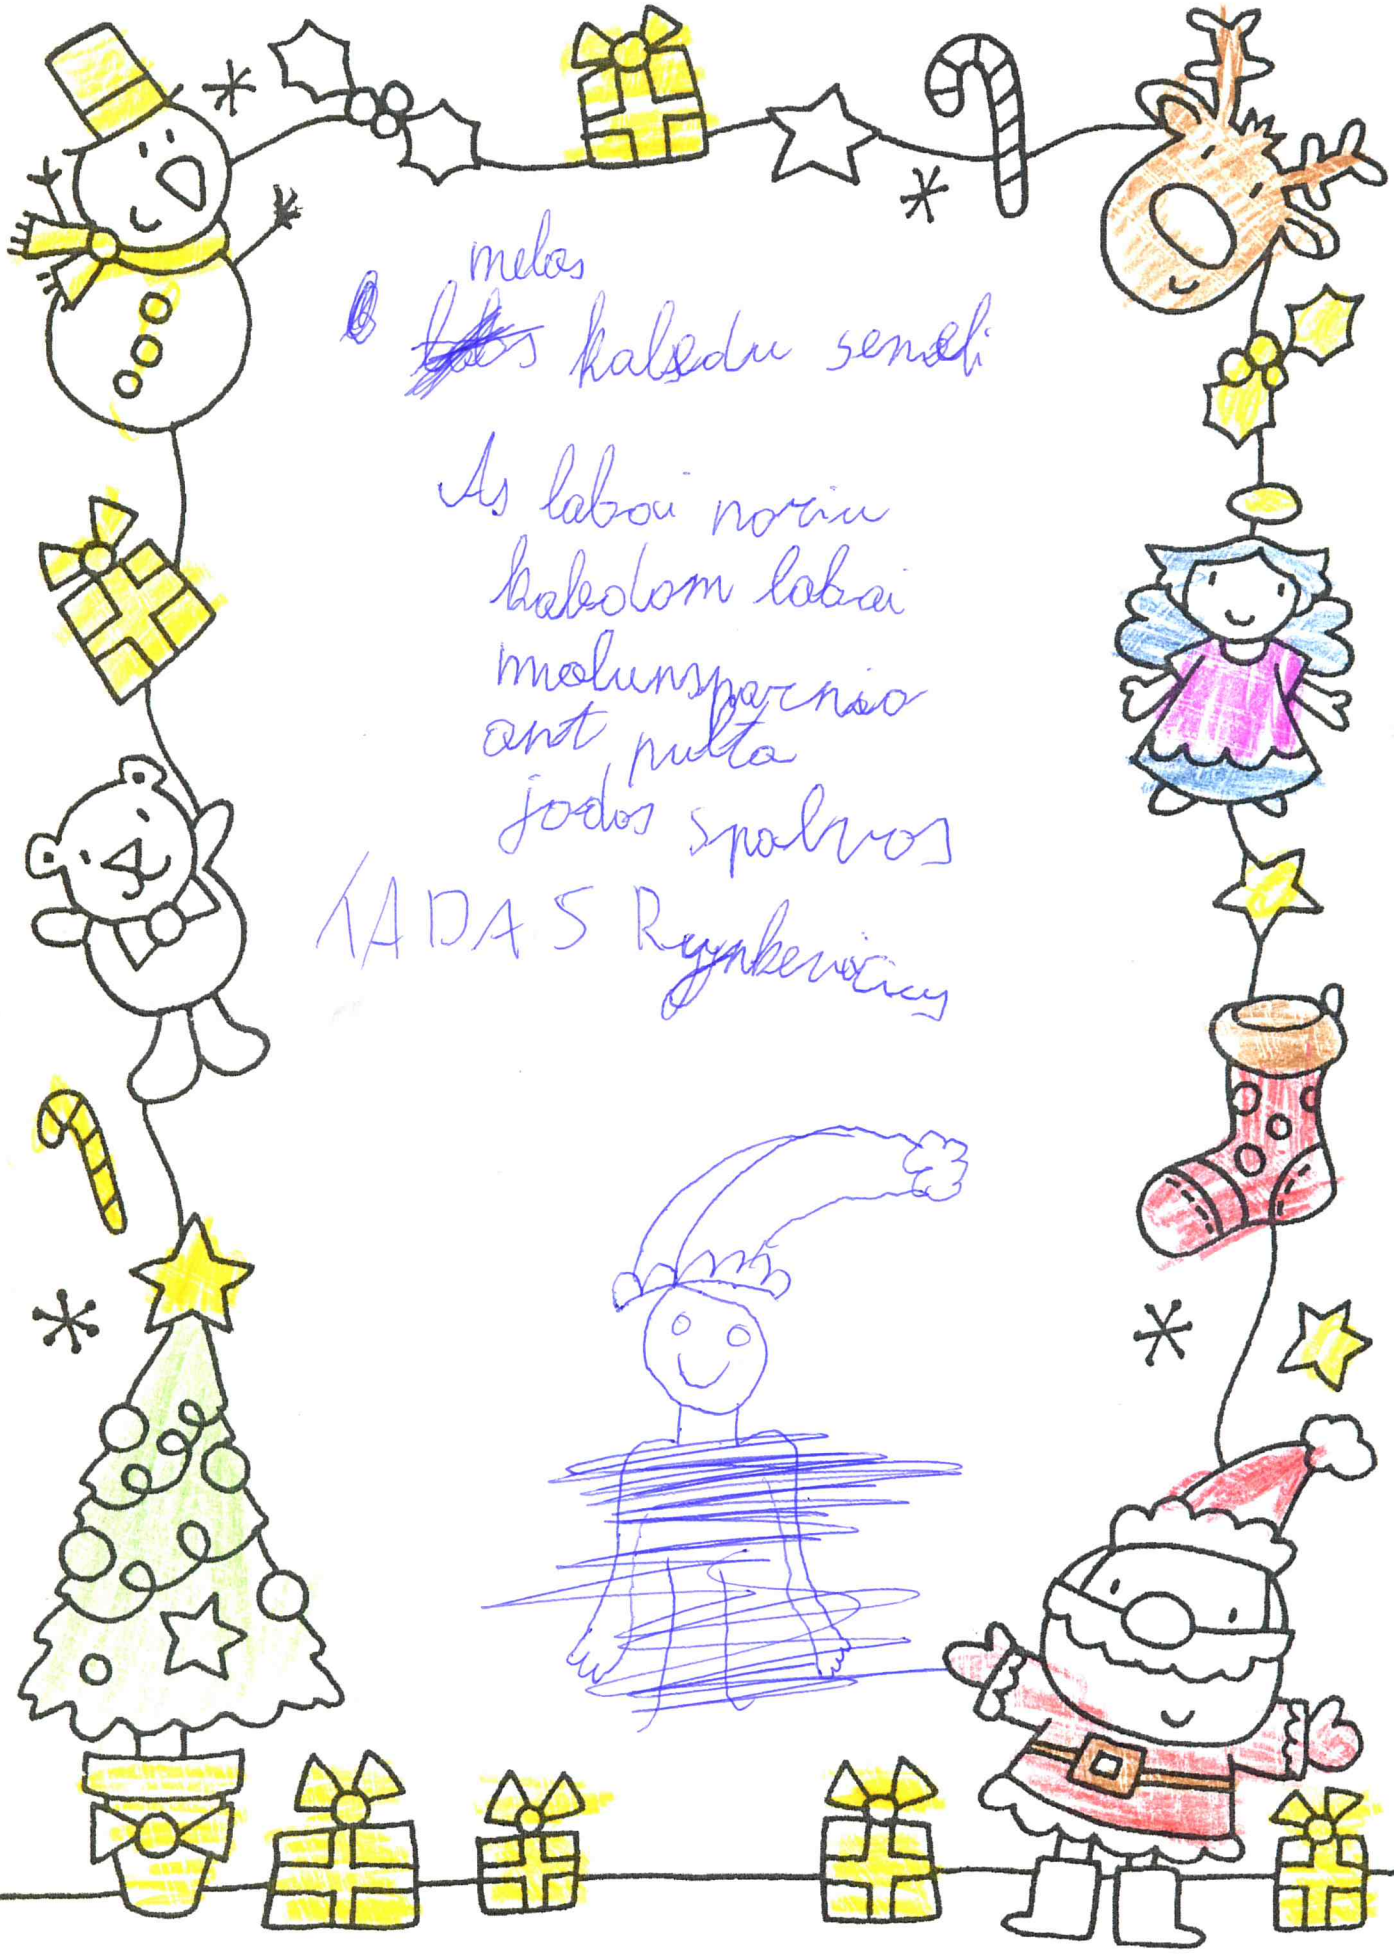 melas
kalsedu seneli
As labai noriu
kaledom labai
malunsparnio
ant pulta
jodos spalvos
TADAS Rynkevičius